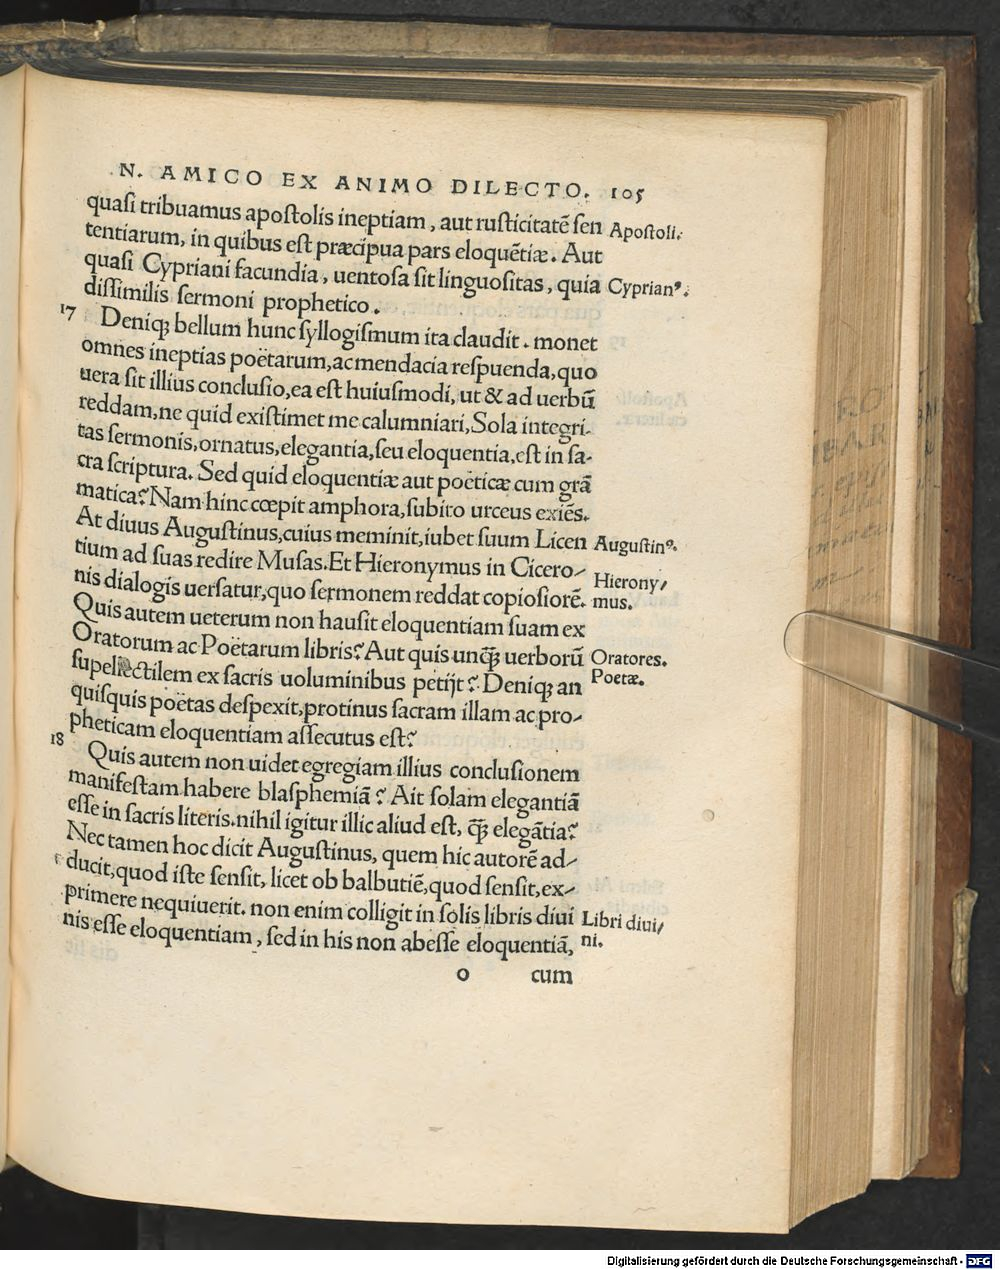 N. AMICO EX ANIMO DILECTO. 105
quasi tribuamus apostolis ineptiam, aut rusticitatē sen Apostoli.
tentiarum, in quibus est præcipua pars eloquētiæ. Aut
quasi Cypriani facundia, uentosa sit linguositas, quia Cyprianꝰ.
dissimilis sermoni prophetico.
17 Deniqꝫ bellum hunc syllogismum ita claudit. monet
omnes ineptias poëtarum, ac mendacia respuenda, quo
uera sit illius conclusio, ea est huiusmodi, ut & ad uerbū
reddam, ne quid existimet me calumniari, Sola integri-
tas sermonis, ornatus, elegantia, seu eloquentia, est in sa-
cra scriptura. Sed quid eloquentiæ aut poëticæ cum grā
matica? Nam hinc cœpit amphora, subito urceus exiēs.
At diuus Augustinus, cuius meminit, iubet suum Licen Augustinꝰ.
tium ad suas redire Musas. Et Hieronymus in Cicero-
nis dialogis uersatur, quo sermonem reddat copiosiorē. Hierony/
mus.
Quis autem ueterum non hausit eloquentiam suam ex
Oratorum ac Poëtarum libris? Aut quis unq̄ꝫ uerborū Oratores.
supellectilem ex sacris uoluminibus petijt? Deniqꝫ an Poetæ.
quisquis poëtas despexit, protinus sacram illam ac pro-
pheticam eloquentiam assecutus est?
18 Quis autem non uidet egregiam illius conclusionem
manifestam habere blasphemiā? Ait solam elegantiā
esse in sacris literis. nihil igitur illic aliud est, q̄ꝫ elegātia?
Nec tamen hoc dicit Augustinus, quem hic autorē ad-
ducit, quod iste sensit, licet ob balbutiē, quod sensit, ex-
primere nequiuerit. non enim colligit in solis libris diui Libri diui/
nis esse eloquentiam, sed in his non abesse eloquentiā, ni.
o cum
Digitalisierung gefördert durch die Deutsche Forschungsgemeinschaft - DFG